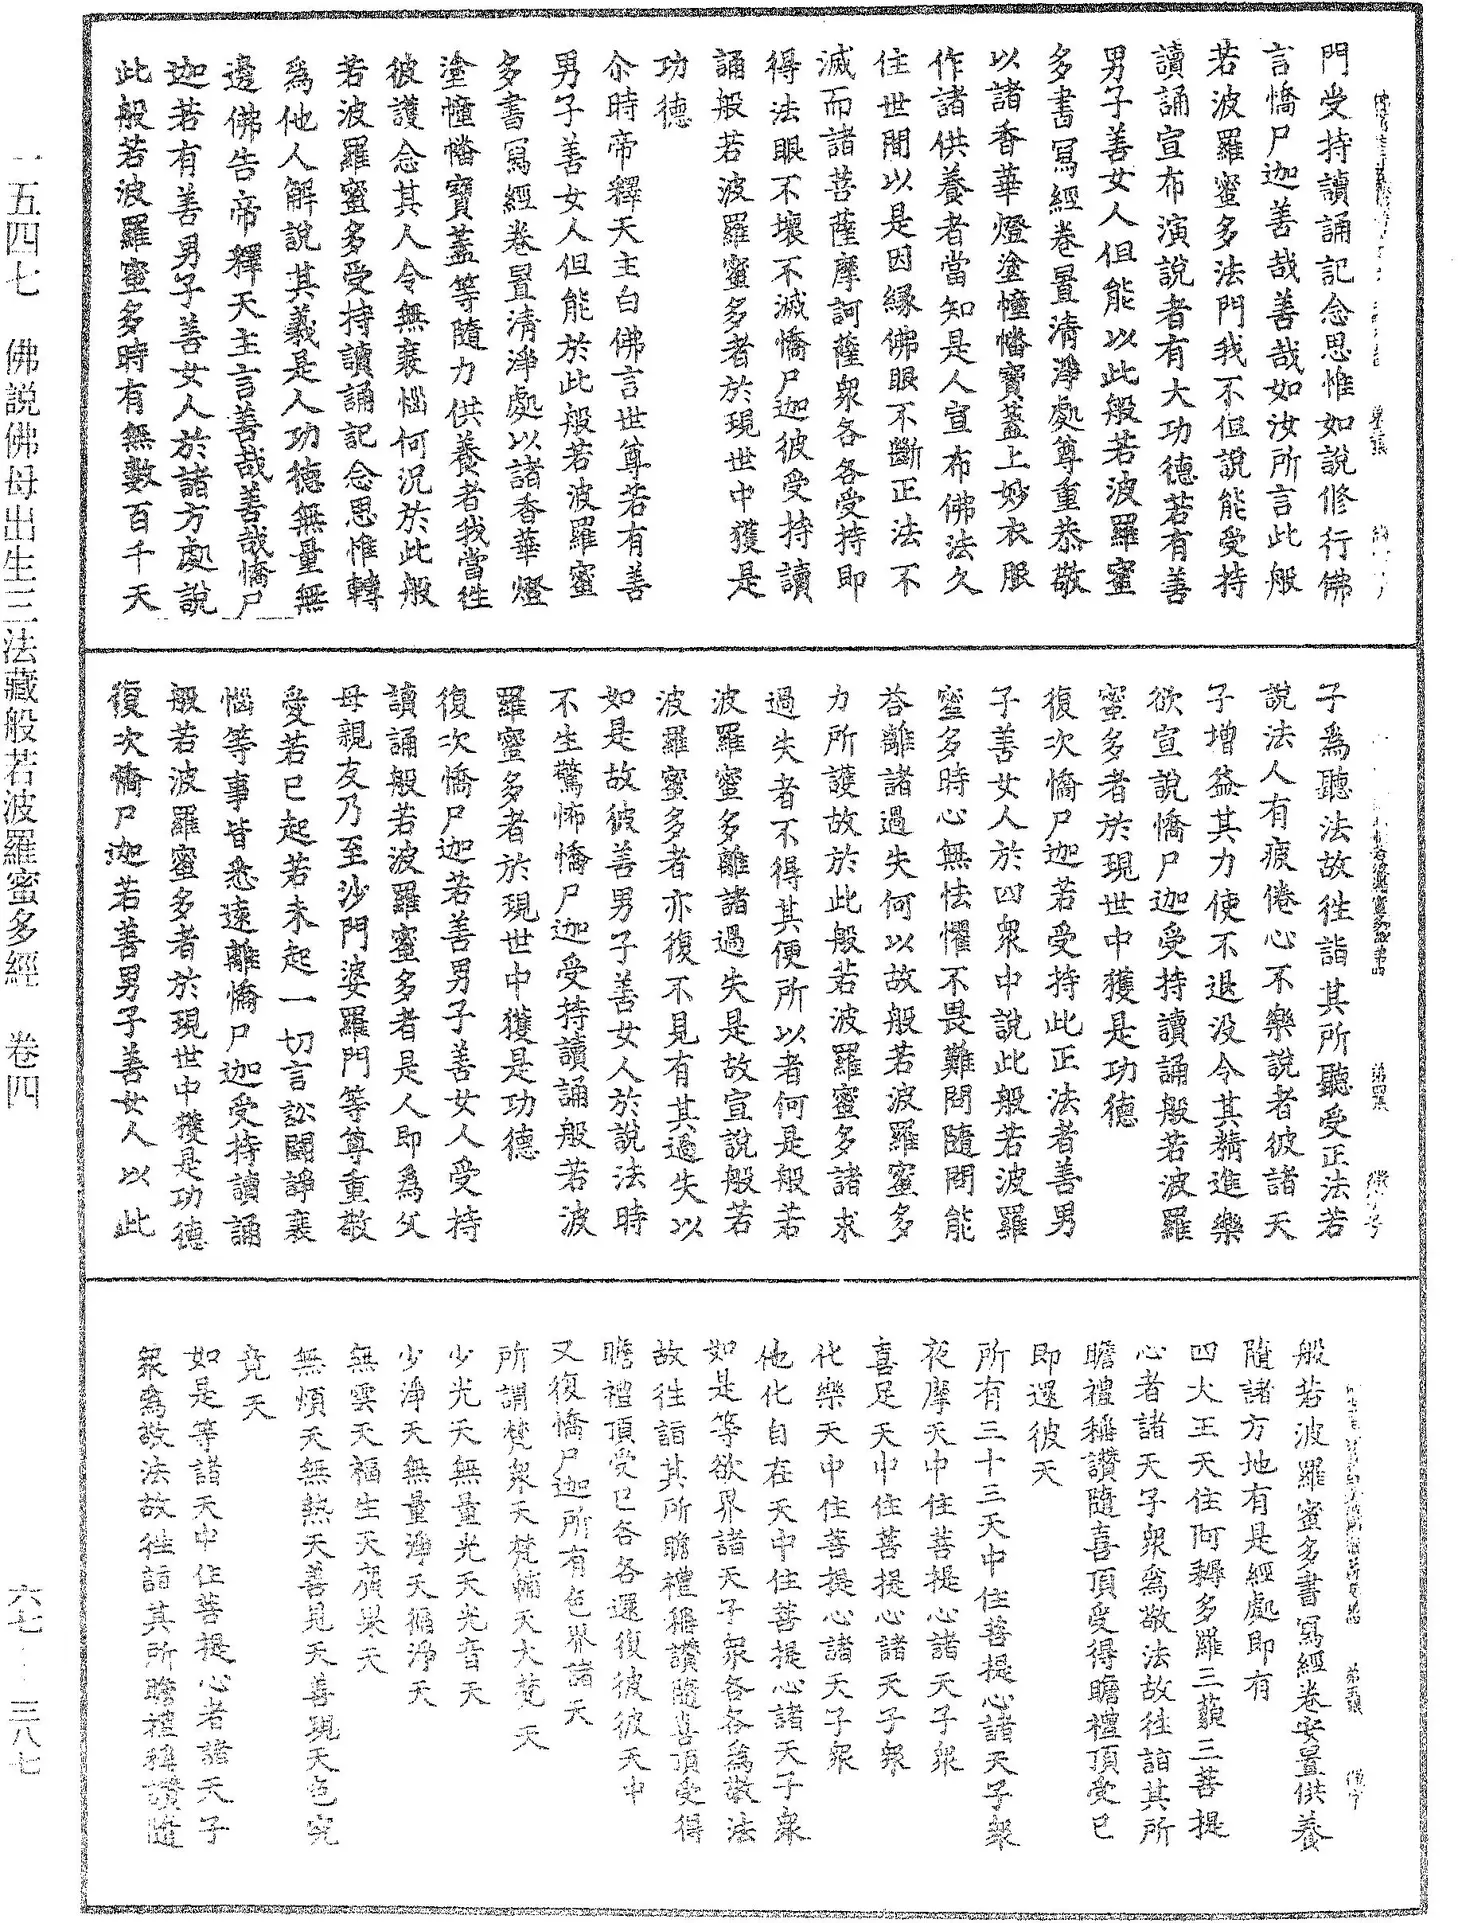 門受持讀誦記念思惟如說修行佛
言憍尸迦善哉善哉如汝所言此般
若波羅蜜多法門我不但說能受持
讀誦宣布演說者有大功德若有善
男子善女人但能以此般若波羅蜜
多書寫經卷置清淨處尊重恭敬
以諸香華燈塗幢幡寶蓋上妙衣服
作諸供養者當知是人宣布佛法久
住世間以是因緣佛眼不斷正法不
滅而諸菩薩摩訶薩眾各各受持即
得法眼不壞不滅憍尸迦彼受持讀
誦般若波羅蜜多者於現世中獲是
功德
尒時帝釋天主白佛言世尊若有善
男子善女人但能於此般若波羅蜜
多書寫經卷置清淨處以諸香華燈
塗幢幡寶蓋等隨力供養者我當往
彼護念其人令無衰惱何況於此般
若波羅蜜多受持讀誦記念思惟轉
為他人解說其義是人功德無量無
邊佛告帝釋天主言善哉善哉憍尸
迦若有善男子善女人於諸方處說
此般若波羅蜜多時有無數百千天
子為聽法故往詣其所聽受正法若
說法人有疲倦心不樂說者彼諸天
子增益其力使不退沒令其精進樂
欲宣說憍尸迦受持讀誦般若波羅
蜜多者於現世中獲是功德
復次憍尸迦若受持此正法者善男
子善女人於四眾中說此般若波羅
蜜多時心無怯懼不畏難問隨問能
荅離諸過失何以故般若波羅蜜多
力所護故於此般若波羅蜜多諸求
過失者不得其便所以者何是般若
波羅蜜多離諸過失是故宣說般若
波羅蜜多者亦復不見有其過失以
如是故彼善男子善女人於說法時
不生驚怖憍尸迦受持讀誦般若波
羅蜜多者於現世中獲是功德
復次憍尸迦若善男子善女人受持
讀誦般若波羅蜜多者是人即為父
母親友乃至沙門婆羅門等尊重敬
愛若已起若未起一切言訟鬪諍衰
惱等事皆悉遠離憍尸迦受持讀誦
般若波羅蜜多者於現世中獲是功德
復次憍尸迦若善男子善女人以此
般若波羅蜜多書寫經卷安置供養
隨諸方地有是經處即有
四大王天住阿耨多羅三藐三菩提
心者諸天子眾為敬法故往詣其所
瞻禮稱讚隨喜頂受得瞻禮頂受已
即還彼天
所有三十三天中住菩提心諸天子眾
夜摩天中住菩提心諸天子眾
喜足天中住菩提心諸天子眾
化樂天中住菩提心諸天子眾
他化自在天中住菩提心諸天子眾
如是等欲界諸天子眾各各為敬法
故往詣其所瞻禮稱讚隨喜頂受得
瞻禮頂受已各各還復彼彼天中
又復憍尸迦所有色界諸天
所謂梵眾天梵輔天大梵天
少光天無量光天光音天
少淨天無量淨天徧淨天
無雲天福生天廣果天
無煩天無熱天善見天善現天色究
竟天
如是等諸天中住菩提心者諸天子
眾為敬法故往詣其所瞻禮稱讚隨
一五四七 佛說佛母出生三法藏般若波羅蜜多經 卷四
六七——三八七